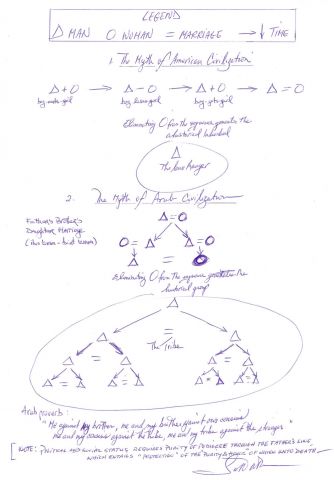 LEGEND
Δ MAN O WOMAN = MARRIAGE → ↓ TIME
1. The Myth of "American Civilization"
Δ + O → Δ - O → Δ + O → Δ = O
boy-meets-girl boy-loses-girl boy-gets-girl
Eliminating O from the sequence generates the
ahistorical individual
Δ
The lone Ranger
2. The Myth of Arab Civilization
Father's Brother's
Daughter Marriage
Δ = O
O = Δ Δ = O
Δ = O
Eliminating O from the sequence generates the
ahistorical group
Δ
Δ = Δ
The Tribe
Δ = Δ Δ = Δ
Δ = Δ Δ = Δ Δ = Δ Δ = Δ
Arab proverb:
"Me against my brother, me and my brother against our cousins
me and my cousins against the tribe, me and my tribe against the stranger"
[NOTE: POLITICAL AND SOCIAL STATUS REQUIRES PURITY OF DESCENT THROUGH THE FATHER'S LINE,
WHICH ENTAILS "PROTECTION" OF THE PURITY OF WOMEN UNTO DEATH